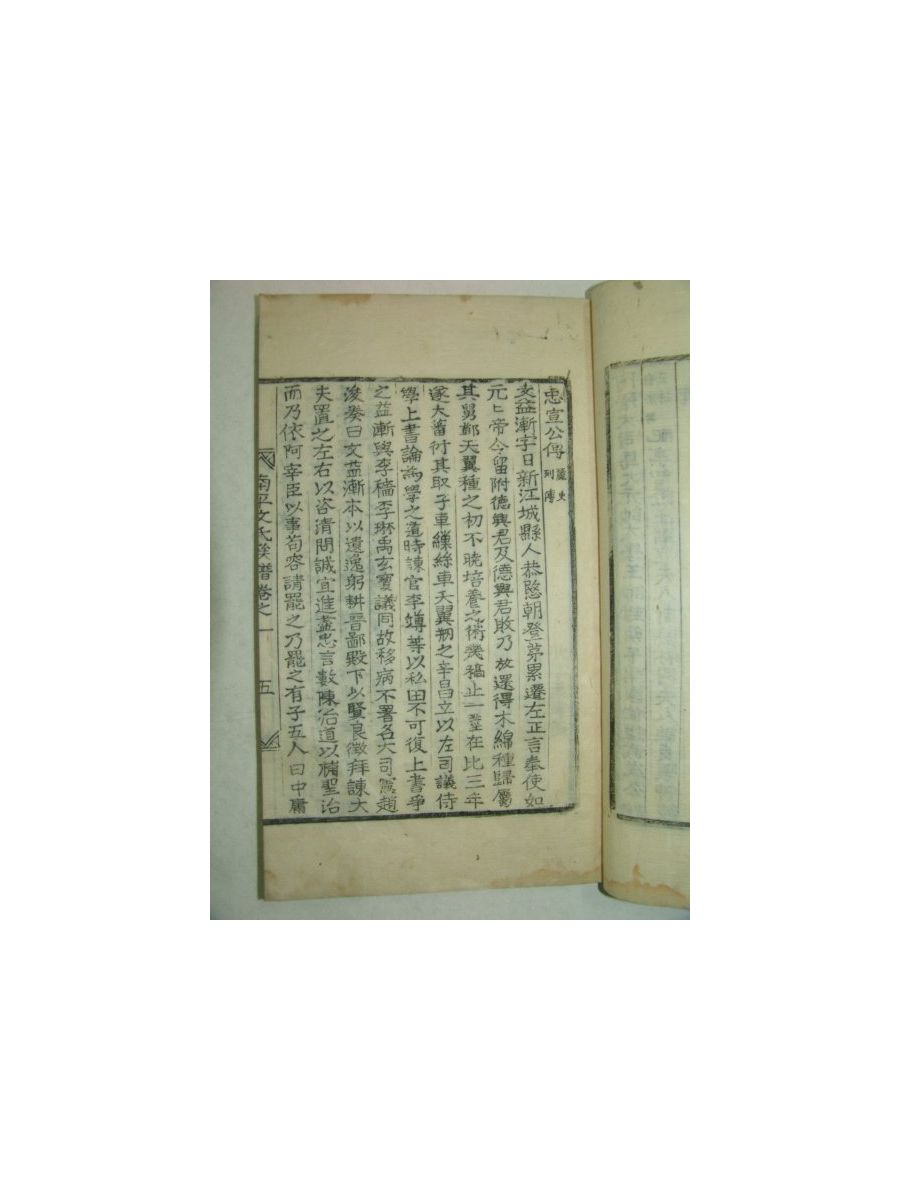 忠宣公傳 麗史列傳
文益漸字日新江城縣人恭愍朝登第累遷左正言奉使如
元〻帝令留附德興君及德興君敗乃放還得木綿種歸屬
其舅鄭天翼種之初不曉培養之術幾稿止一莖在比三年
遂大蕃衍其取子車繅絲車天翼刱之辛昌立以左司議侍
學上書論爲學之道時諫官李竴等以私田不可復上書爭
之益漸與李穡李琳禹玄寶議同故移病不署名大司憲趙
浚奏曰文益漸本以遺逸躬耕晋鄙殿下以賢良徵拜諫大
夫置之左右以咨淸問誠宜進盡忠言數陳治道以補聖治
而乃依阿宰臣以事苟容請罷之乃罷之有子五人曰中庸
南平文氏族譜卷之一 五